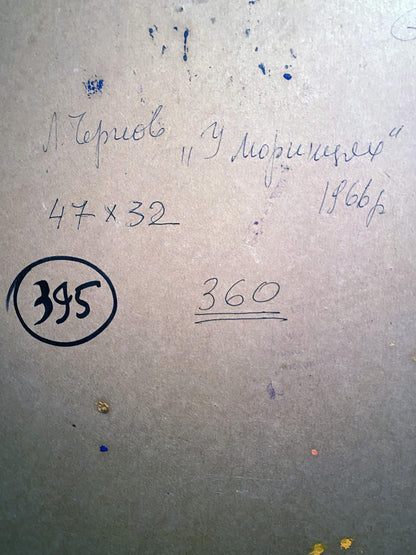 Л. Чернов „У Моринцях"
1966р
47 × 32
395
360